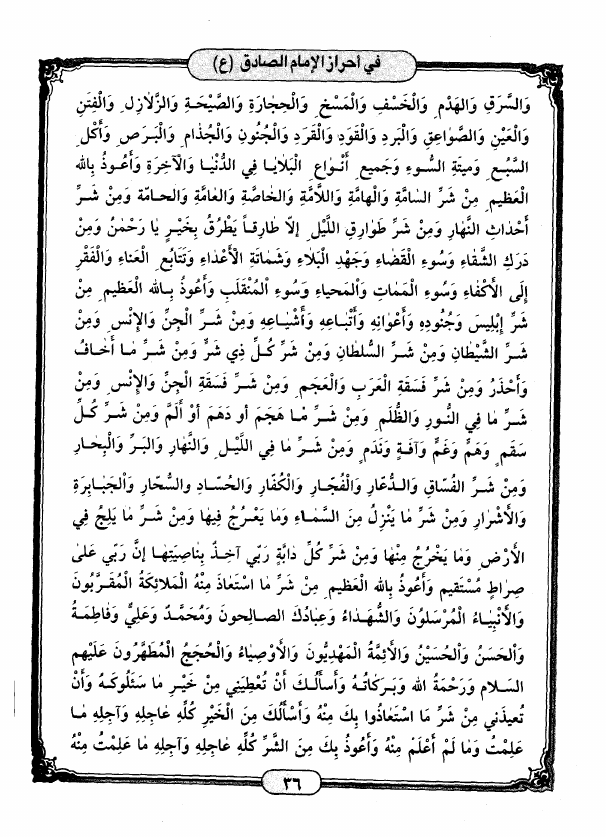 في احراز الإمام الصادق (ع)
وَالسَّرَقِ وَالهَدْمِ وَالْخَسْفِ وَالْمَسْخِ وَالْحِجارَةِ وَالصَّيْحَةِ وَالزَّلازِلِ وَالْفِتَنِ
وَالْعَيْنِ وَالصَّواعِقِ وَالْبَرَدِ وَالْقَوَدِ وَالْقَرَدِ وَالْجُنُونِ وَالْجُذامِ وَالْبَرَصِ وَأَكْلِ
السَّبُعِ وَمِيتَةِ السُّوءِ وَجَميعِ أَنْواعِ الْبَلايَا فِي الدُّنْيَا وَالْآخِرَةِ وَأَعُوذُ بِالله
الْعَظيمِ مِنْ شَرِّ السَامَّةِ وَالْهامَّةِ وَاللاَّمَّةِ وَالْخاصَّةِ وَالعَامَّةِ وَالحامّةِ وَمِنْ شَرِّ
أَحْداثِ النَّهارِ وَمِنْ شَرِّ طَوارِقِ اللَّيْلِ إلاّ طارِقاً يَطْرُقُ بِخَيْرٍ يا رَحْمٰنُ وَمِنْ
دَرَكِ الشَّقاءِ وَسُوءِ الْقَضاءِ وَجَهْدِ الْبَلاءِ وَشَماتَةِ الْأَعْداءِ وَتَتابُعِ الْعَناءِ وَالْفَقْرِ
إِلَى الْأَكْفاءِ وَسُوءِ المَمَاتِ وَاْلمَحياءِ وَسُوءِ اْلمُنْقَلَبِ وَأَعُوذُ بِالله الْعَظيمِ مِنْ
شَرِّ إِبْلِيسَ وَجُنُودِهِ وَأَعْوانِهِ وَأَتْباعِهِ وَأَشْياعِهِ وَمِنْ شَرِّ الْجِنِّ وَالإِنْسِ وَمِنْ
شَرِّ الشَّيْطانِ وَمِنْ شَرِّ السُّلطانِ وَمِنْ شَرِّ كُلِّ ذِي شَرٍّ وَمِنْ شَرِّ مٰا أَخافُ
وَأَحْذَرُ وَمِنْ شَرِّ فَسَقَةِ الْعَرَبِ وَالعَجَمِ وَمِنْ شَرِّ فَسَقَةِ الْجِنِّ وَالإِنْسِ وَمِنْ
شَرِّ ما فِي النُّورِ وَالظُّلَمِ وَمِنْ شَرِّ مٰا هَجَمَ أو دَهَمَ أوْ أَلَمَّ وَمِنْ شَرِّ كُلِّ
سَقَمٍ وَهَمٍّ وَغَمٍّ وَآفَةٍ وَنَدَمٍ وَمِنْ شَرِّ مٰا فِي اللَّيْلِ وَالنَّهارِ وَالبَرِّ وَالْبِحَارِ
وَمِنْ شَرِّ الفُسّاقِ وَالدُّعّارِ وَالْفُجّارِ وَالْكُفّارِ وَالحُسّادِ وَالسُّحّارِ وَاْلجَبابِرَةِ
وَالْأَشْرارِ وَمِنْ شَرِّ ما يَنْزِلُ مِنَ السَّماءِ وَمَا يَعْرُجُ فِيهَا وَمِنْ شَرِّ مٰا يَلِجُ فِي
الأَرْضِ وَمَا يَخْرُجُ مِنْهٰا وَمِنْ شَرِّ كُلِّ دابَّةٍ رَبِّي آخِذٌ بِناصِيَتِهٰا إنَّ رَبِّي عَلىٰ
صِراطٍ مُسْتَقيمٍ وَأَعُوذُ بِالله الْعَظيمِ مِنْ شَرِّ مٰا اسْتَعاذَ مِنْهُ الْمَلائِكَةُ الْمُقَرَّبُونَ
وَالْأَنْبِيٰاءُ الْمُرْسَلُونَ وَالشُّهَداءُ وَعِبادُكَ الصالِحونَ وَمُحَمَّدٌ وَعَلِيٌّ وَفاطِمَةُ
وَاْلحَسَنُ وَاْلحُسَيْنُ وَالْأَئِمَّةُ الْمَهْدِيُّونَ وَالْأَوْصِياءُ وَالْحُجَجُ الْمُطَهَّرُونَ عَلَيْهِمِ
السَلام وَرَحْمَةُ الله وَبَرَكاتُهُ وَأَسأَلُكَ أَنْ تُعْطِيَني مِنْ خَيْرِ مٰا سَئَلُوكَهُ وَأَنْ
تُعيذَني مِنْ شَرِّ مَا اسْتَعاذُوا بِكَ مِنْهُ وَأَسْأَلُكَ مِنَ الْخَيْرِ كُلِّهِ عاجِلِهِ وَآجِلِهِ مٰا
عَلِمْتُ وَمٰا لَمْ أَعْلَمْ مِنْهُ وَأَعُوذُ بِكَ مِنَ الشَّرِّ كُلِّهِ عاجِلِهِ وَآجِلِهِ مٰا عَلِمْتُ مِنْهُ
٣٦